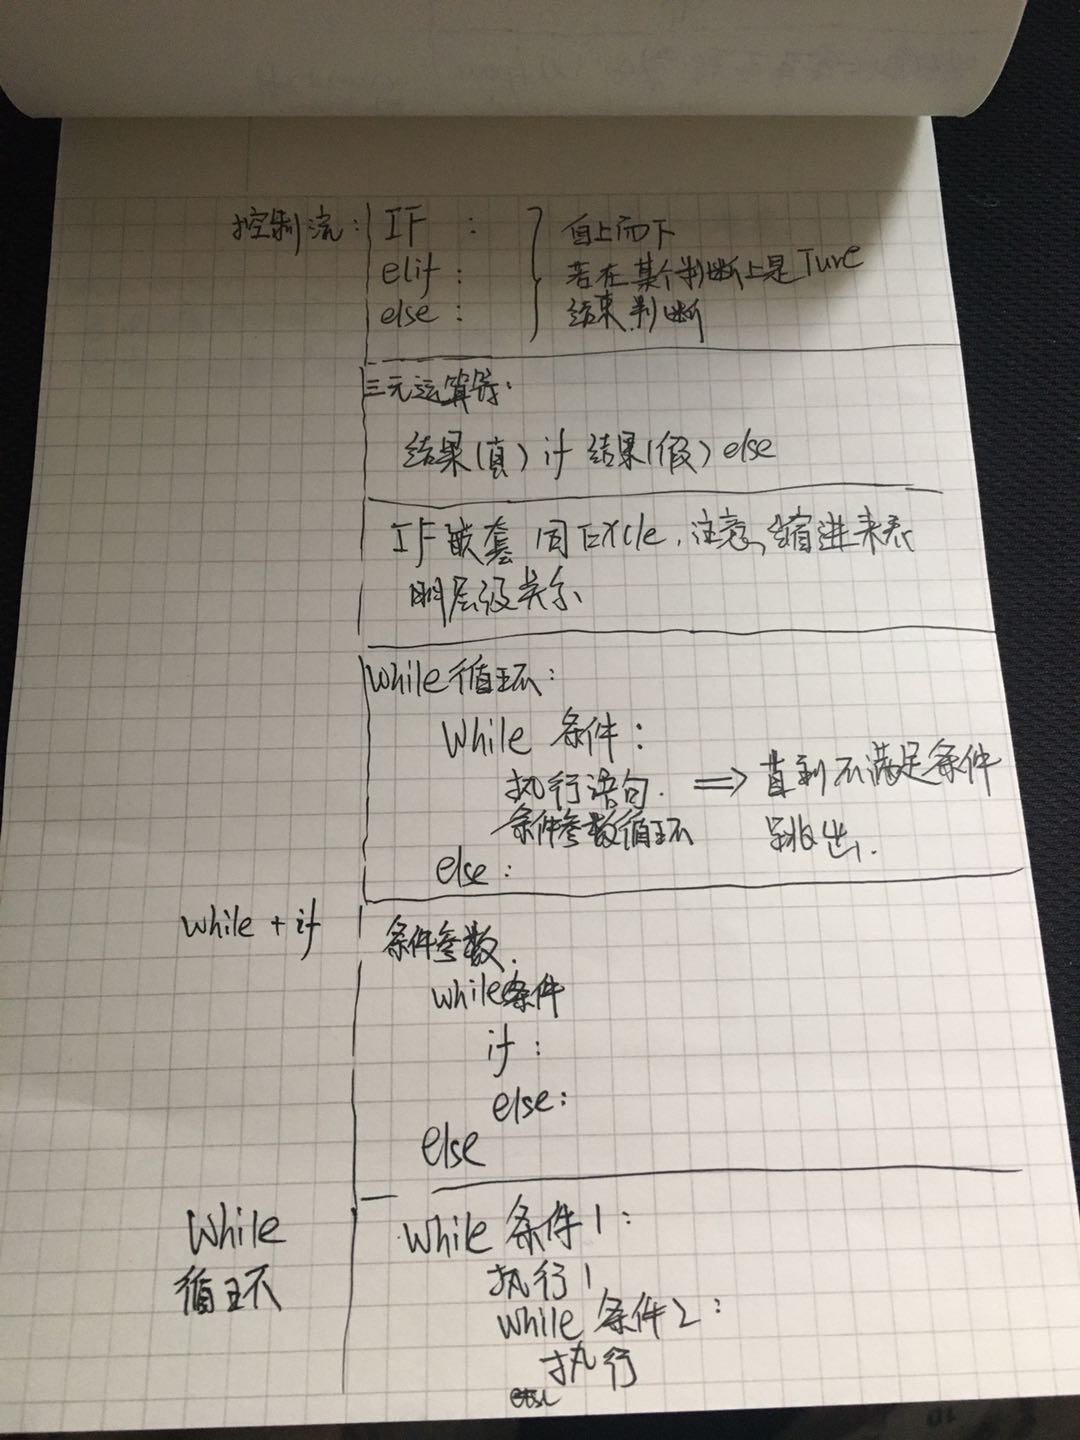 控制流: IF :
elif :
else :
自上而下
若在某个判断上是Ture
结束判断
三元运算符:
结果(真) if 结果(假) else
IF嵌套 同Excle,注意,缩进来表
明层级关系
While循环:
While 条件:
执行语句. ⟹ 直到不满足条件
条件参数循环 跳出.
else:
while + if
条件参数.
while条件
if :
else:
else
While
循环
While 条件1:
执行1
while 条件2:
执行